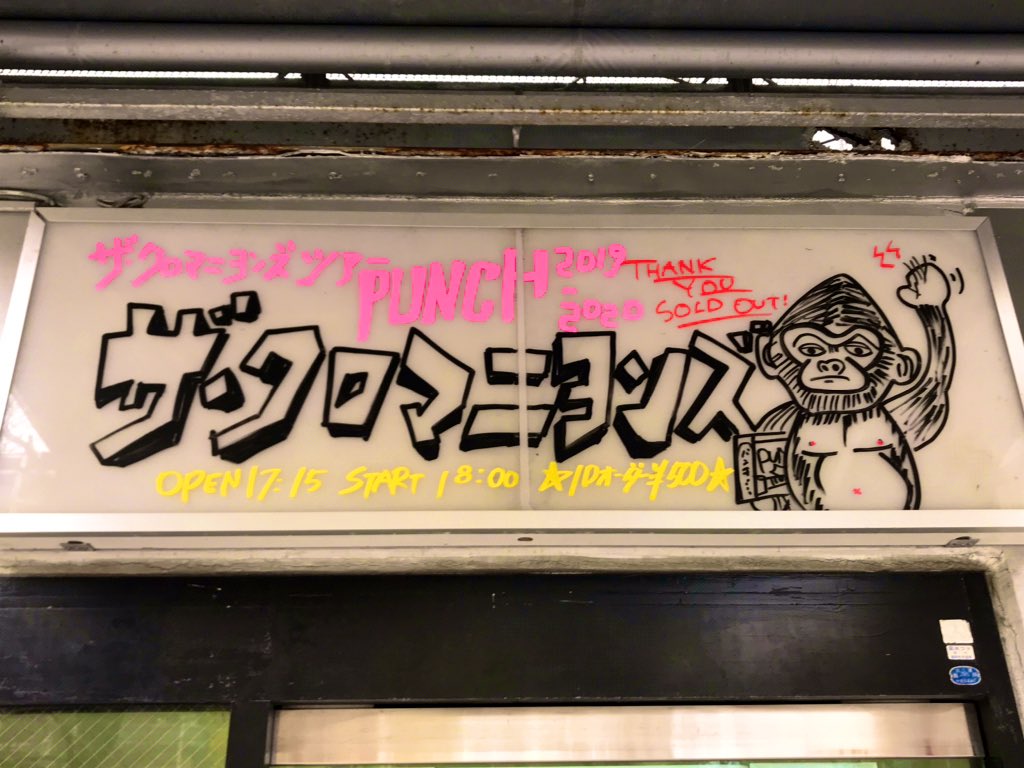 ザ・クロマニヨンズ ツアー PUNCH 2019-2020
THANK
YOU
SOLD OUT!
ザ・クロマニヨンズ
OPEN 17:15 START 18:00 ☆1Dオーダー¥500☆